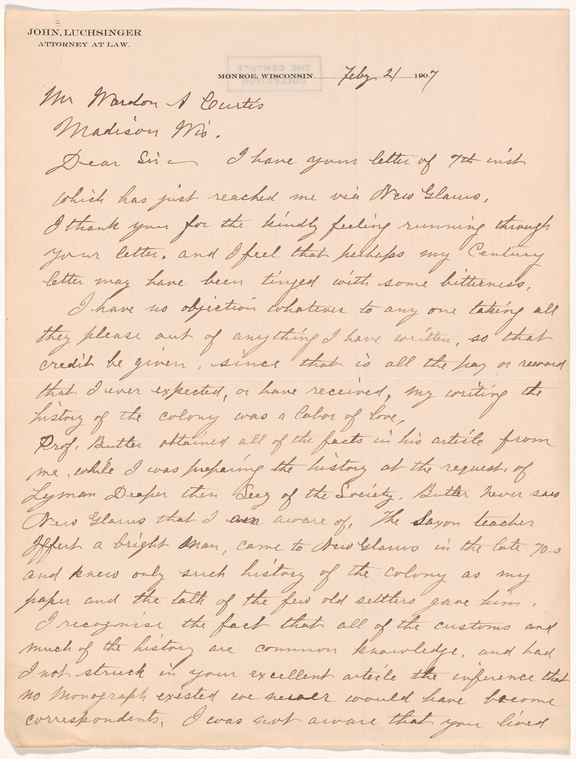 JOHN, LUCHSINGER
ATTORNEY AT LAW.
THE CENTURY
COLLECTION
MONROE, WISCONSIN Feby 21 1907
Mr Wardon A Curtis
Madison Wis.
Dear Sir I have your letter of 7th inst
which has just reached me via New Glarus,
I thank you for the kindly feeling running through
your letter. and I feel that perhaps my Century
letter may have been tinged with some bitterness,
I have no objection whatever to any one taking all
they please out of anything I have written, so that
credit be given, since that is all the pay or reward
that I ever expected, or have received, my writing the
history of the colony was a labor of love,
Prof. Butler obtained all of the facts in his article from
me while I was preparing the history at the request of
Lyman Draper then Secy of the Society. Butler never saw
New Glarus that I am aware of, The Saxon teacher
a bright man, came to New Glarus in the late 70-s
and knew only such history of the colony as my
paper and the talk of the few old settlers gave him.
I recognise the fact that all of the customs and
much of the history are common knowledge, and had
I not struck in your excellent article the inference that
no Monograph existed we never would have become
correspondents, I was not aware that you lived